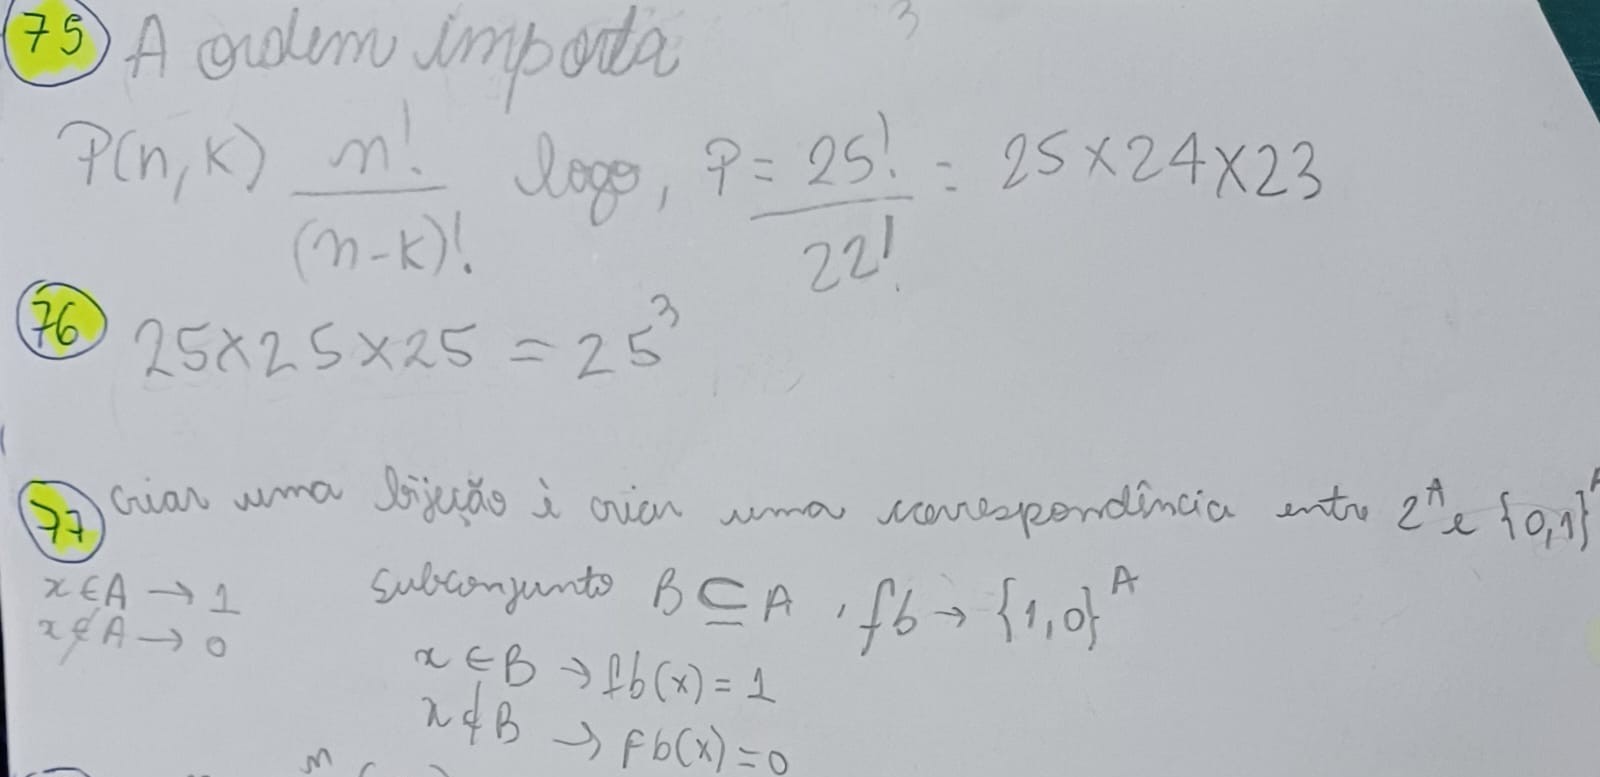 75 A ordem importa
P(n,k) n!/(n-k)! logo, P = 25!/22! = 25×24×23
76 25×25×25 = 25³
77 criar uma bijeção è criar uma correspondência entre 2^A e {0,1}^A
x∈A → 1 subconjunto B⊆A, fb → {1,0}^A
x∉A → 0
x∈B → fb(x) = 1
x∉B → fb(x) = 0